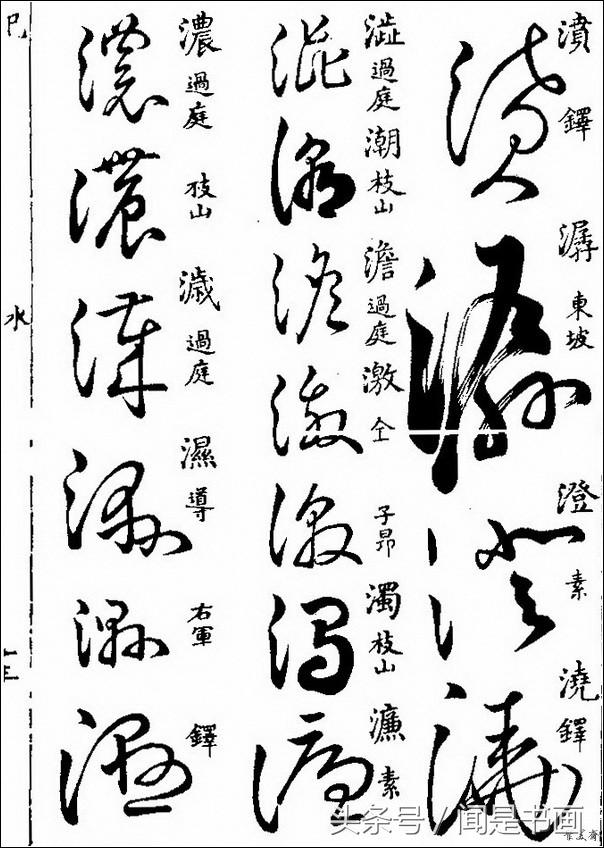 濆 鐸
潺 東坡
澄 素
澆 鐸
澁 過庭
潮 枝山
澹 過庭
激 仝
子昂
濁 枝山
濂 素
濃 過庭
枝山
濊 過庭
濕 導
右軍
鐸
巳
水
十三
头条号 / 闻是书画